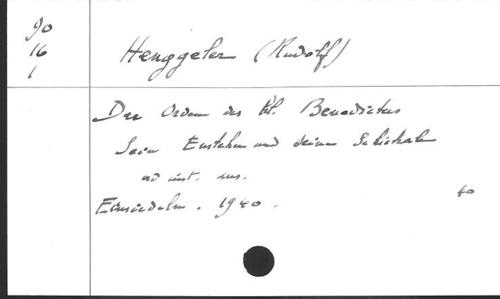 90
16
1
Henggeler (Rudolf)
Der Orden des hl. Benedictus
Sein Enstehen und seine Schicksale
ad inst. ms.
Einsiedeln. 1940.
40